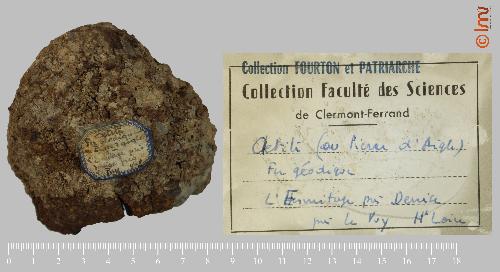 Collection FOURTON et PATRIARCHE
Collection Faculté des Sciences
de Clermont-Ferrand
Aetite (ou Pierre d'Aigle)
Fer géodique
L'Ermitage près Denise
près le Puy Hte Loire
0 1 2 3 4 5 6 7 8 9 10 11 12 13 14 15 16 17 18
© lmv